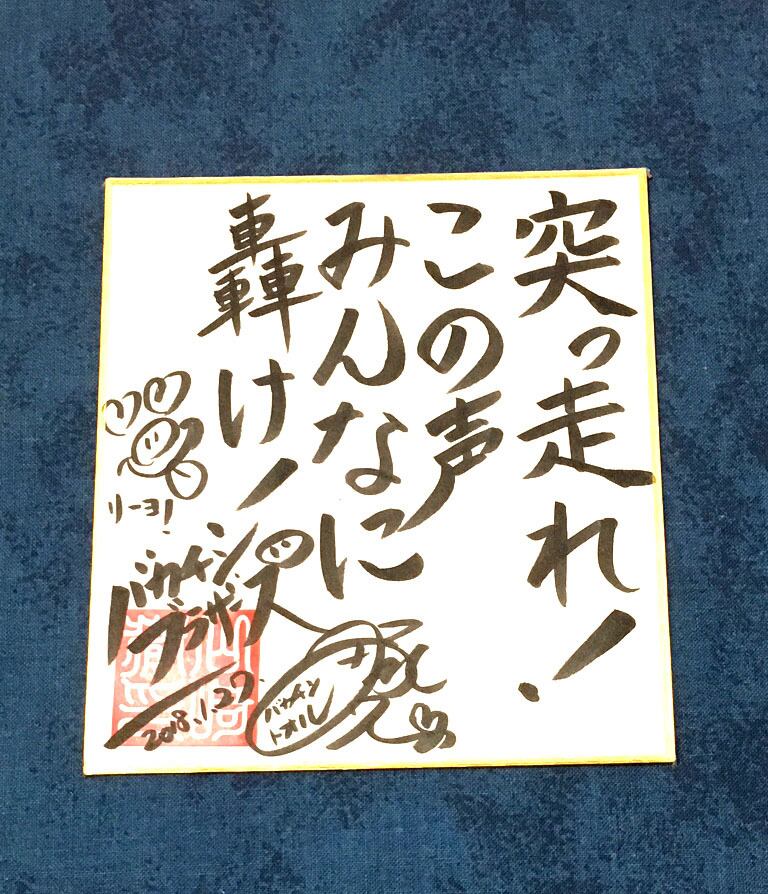 突っ走れ!
この声
みんなに
轟け!
リーヨ!
バカチン
ブラザーズ
2018.1.27.
バカチン
トオル